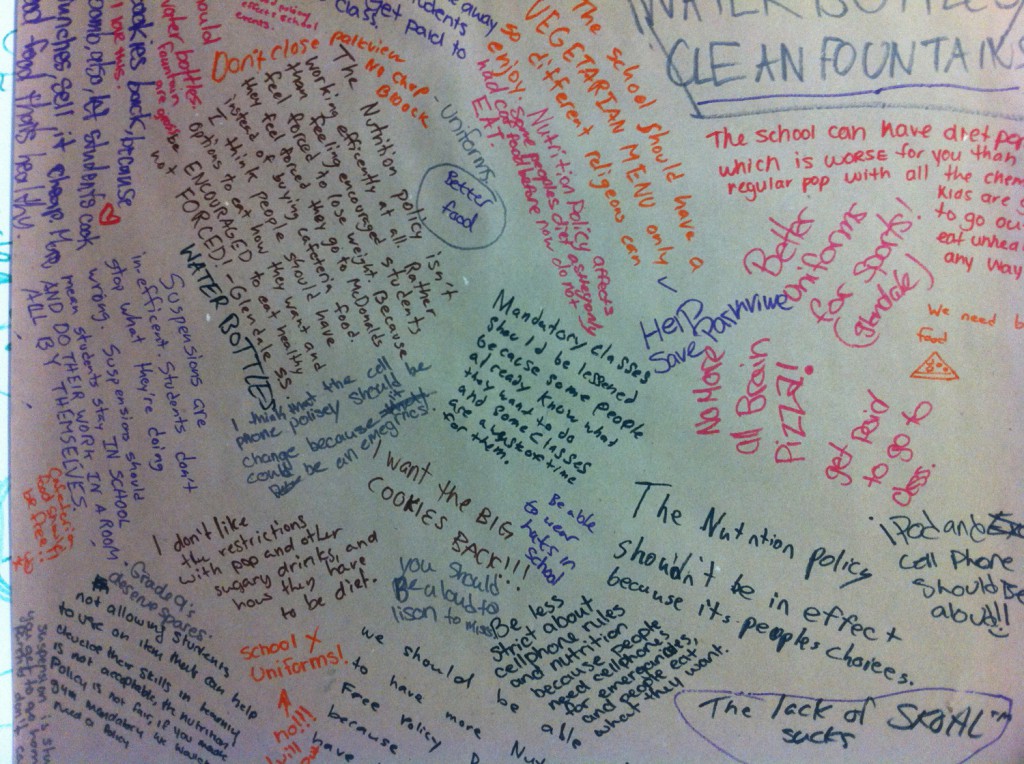 WATER BOTTLES
CLEAN FOUNTAINS
The school can have diet pop
which is WORSE for you than
regular pop with all the chem
kids are
to go ou
eat unhea
any way
Better
Uniforms
for Sports!
(Glendale)
We need b
food
No More
all Brain
Pizza!
get paid
to go to
class.
Help
Save Parkview
The school should have a
VEGETARIAN MENU only
so different religeous can
enjoy
EAT.
Nutrition Policy affects
away
students
get paid to
class
Don't close parkview
NO chop
Block
- Uniforms
Better
food
The Nutrition policy isn't
working efficiently at all. Rather
than feeling encouraged students
feel forced to lose weight. Because
they forced they go to McDonalds
instead of buying cafeteria food.
I think people should have
options to eat how they want and
ENCOURAGED to eat healthy
not FORCED! - Glendale SS
WATER BOTTLES
should
water bottles.
water fountain
are gross
I love this.
cookies back, because
comb, also, let students cook
lunches, sell it cheap. Mmm
and food that's healthy.
Suspensions are
in-efficent. Students don't
stop what they're doing
wrong. Suspensions should
mean students stay IN SCHOOL
AND DO THEIR WORK IN A ROOM
ALL BY THEMSELVES.
I think that the cell
phone policy should be
change because
could be an emegrics!
Mandatory classes
should be lessoned
because some people
already know what
they want to do
and some classes
are a waste of time
for them.
I want the BIG
COOKIES BACK!!!
Be able
to wear
hats in
school
The Nutrition policy
shouldn't be in effect
because it's peoples choices.
iPod and
cell Phone
Should Be
aboud!!
Cafeteria
food should
be free!!
I don't like
the restrictions
with pop and other
sugary drinks, and
how they have
to be diet.
you should
Be aloud to
lison to music
Be less
strict about
cellphone rules
and nutrition
because people
need cellphones
for emergencies,
and people eat
what they want.
Grade 9's
deserve spares.
not allowing students
to use an item that can help
develop their skills in learning
is not acceptable, the nutrition
Policy is not fair, if you made
gym mandatory we wouldn't
need a policy
School X
Uniforms!
no!!!
we should be able
to have more
Free
because
have
The lack of SKOAL™
sucks